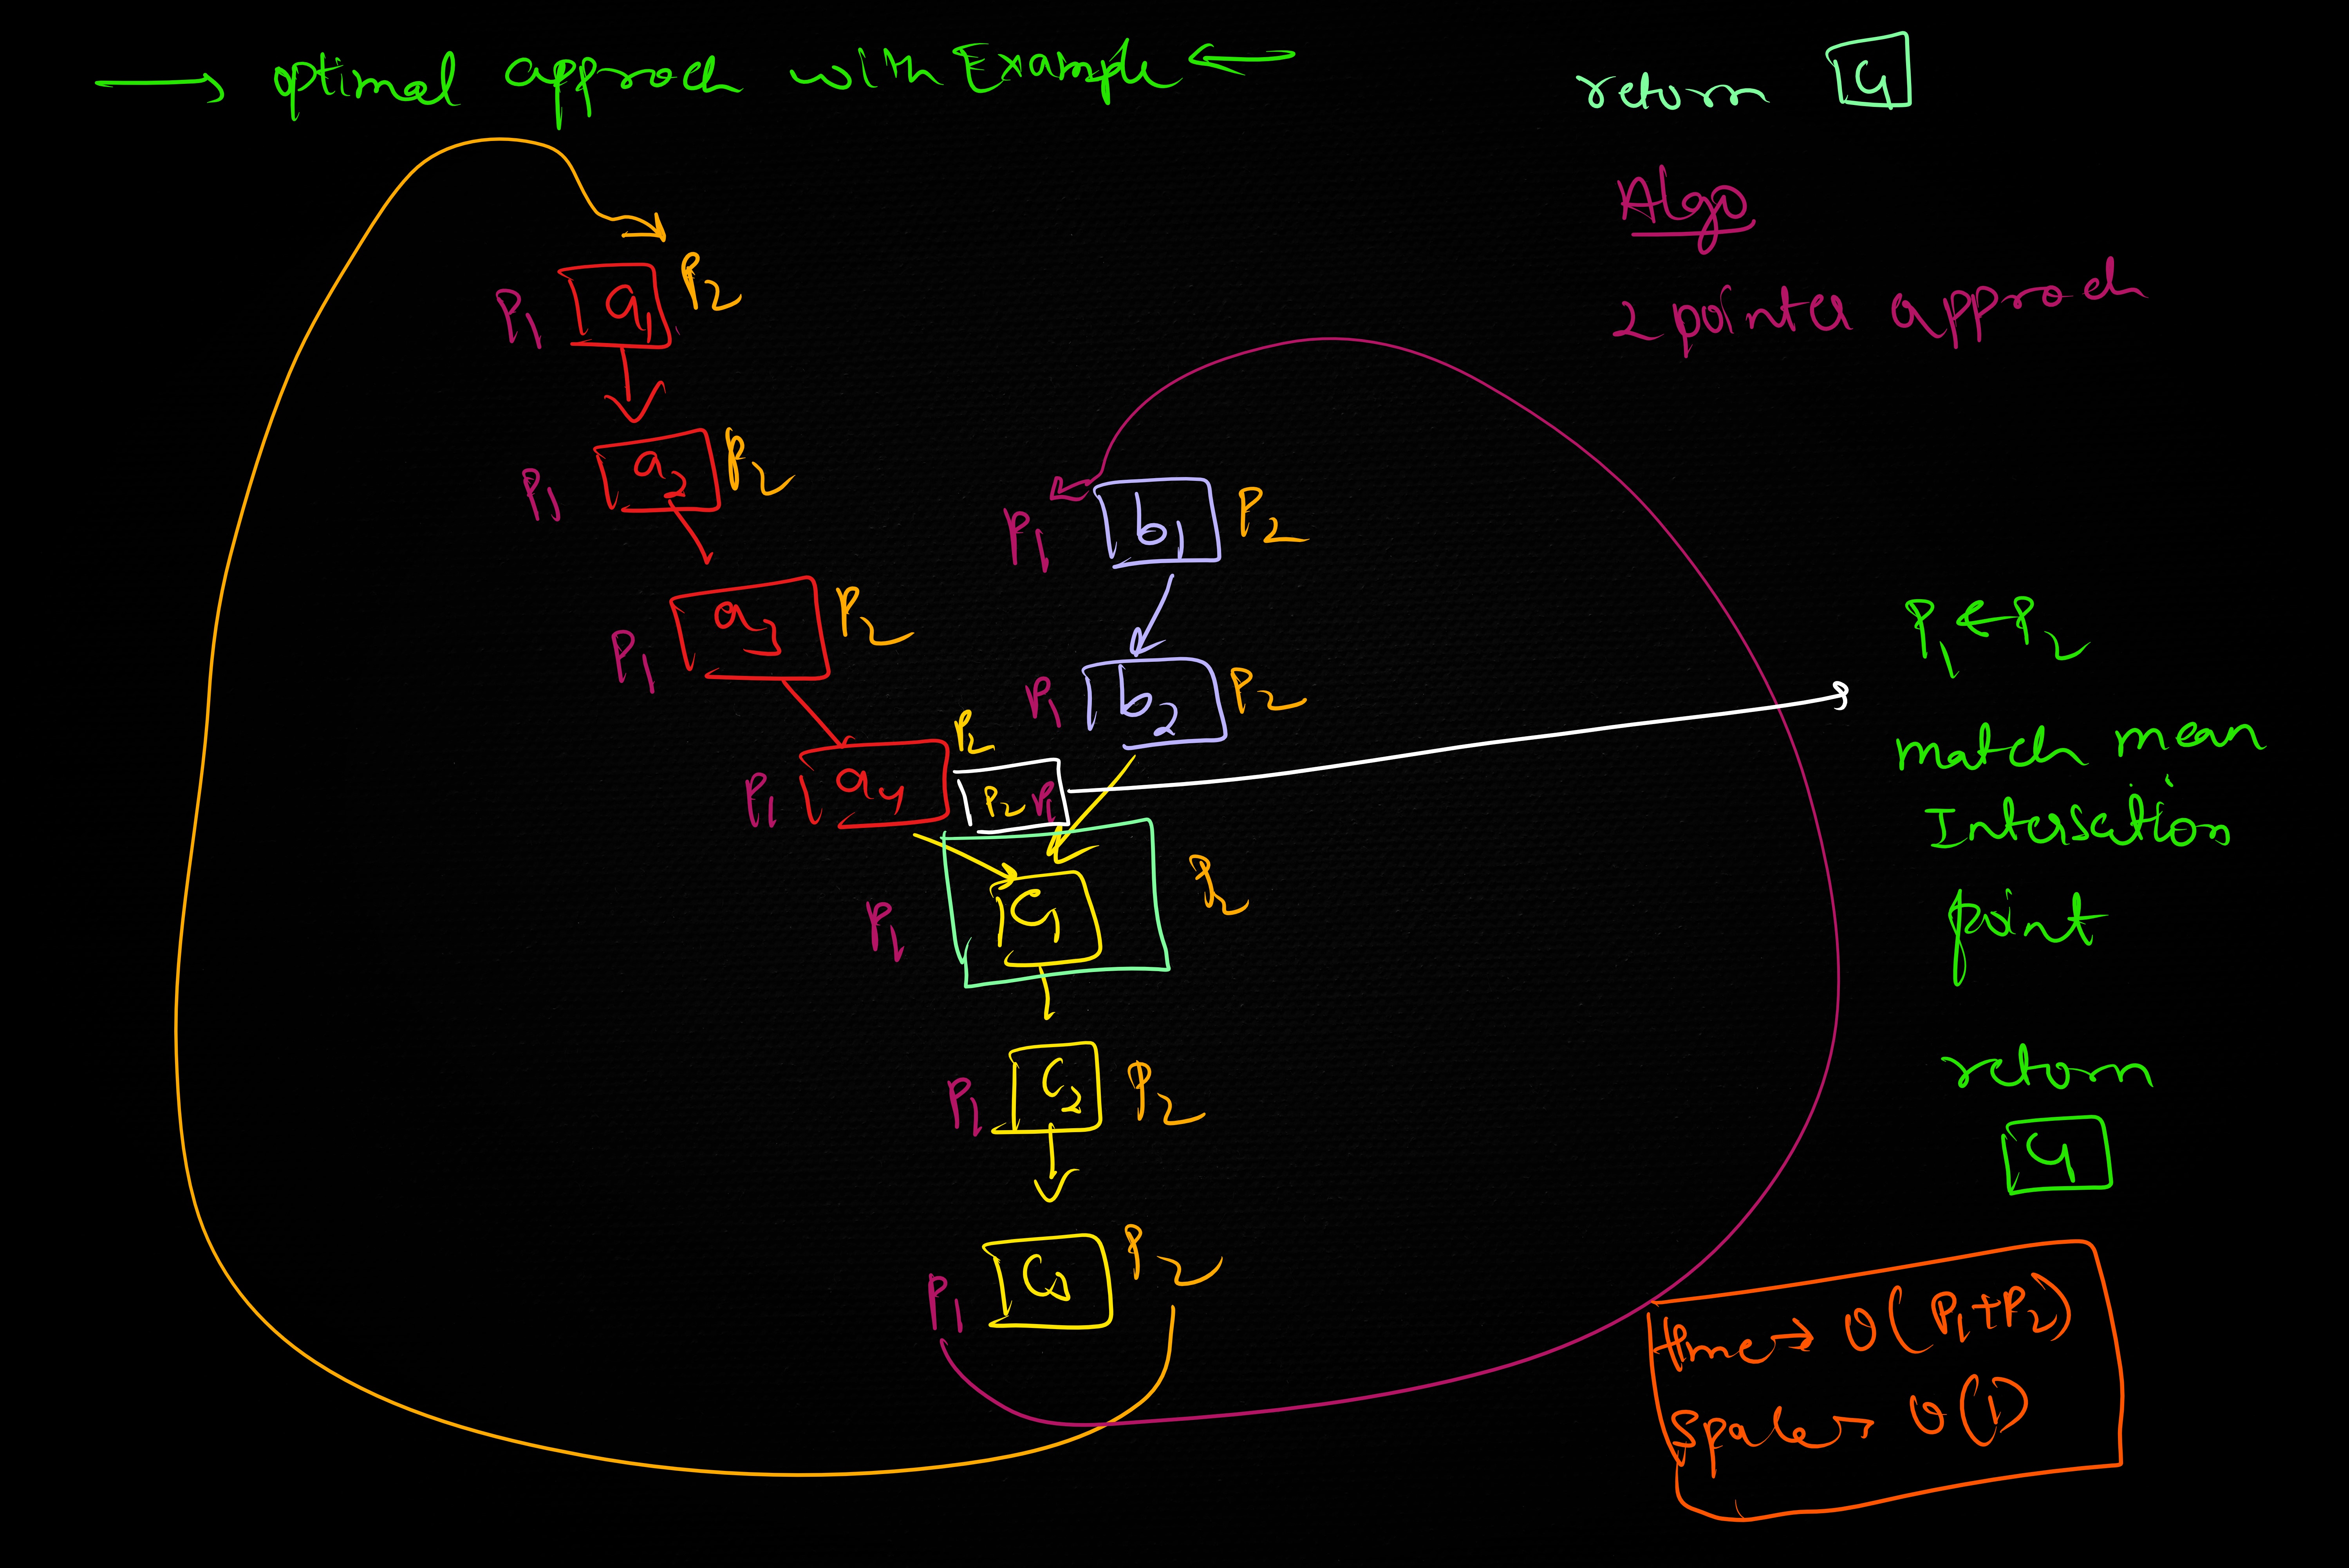 → optimal approch with Example ←
return C1
Algo
2 pointer approch
P1 a1 P2
P1 a2 P2
P1 a3 P2
P1 b1 P2
P1 b2 P2
P1 a4 P2
P2 P1
P1 C1 P2
P1 C2 P2
P1 C3 P2
P1 ← P2
match mean
Intersation
point
return
C1
time → O(P1+P2)
Space → O(1)